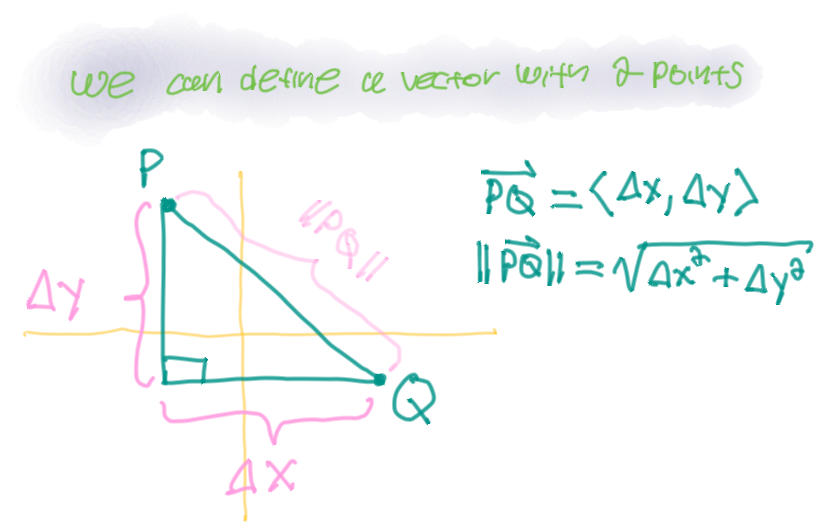 we can define a vector with 2 points
P
||PQ||
Δy
Q
Δx
PQ⃗ = ⟨Δx, Δy⟩
||PQ⃗|| = √(Δx² + Δy²)